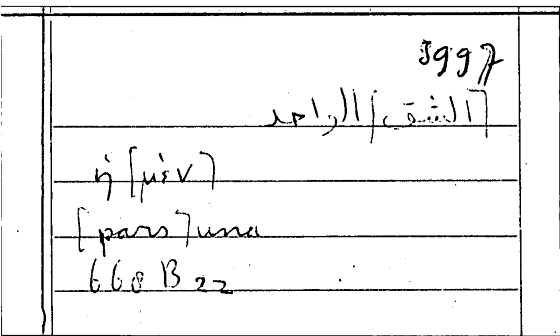 5997
[الشق] الواحد
ἡ [μὲν]
[pars] una
668 B 22